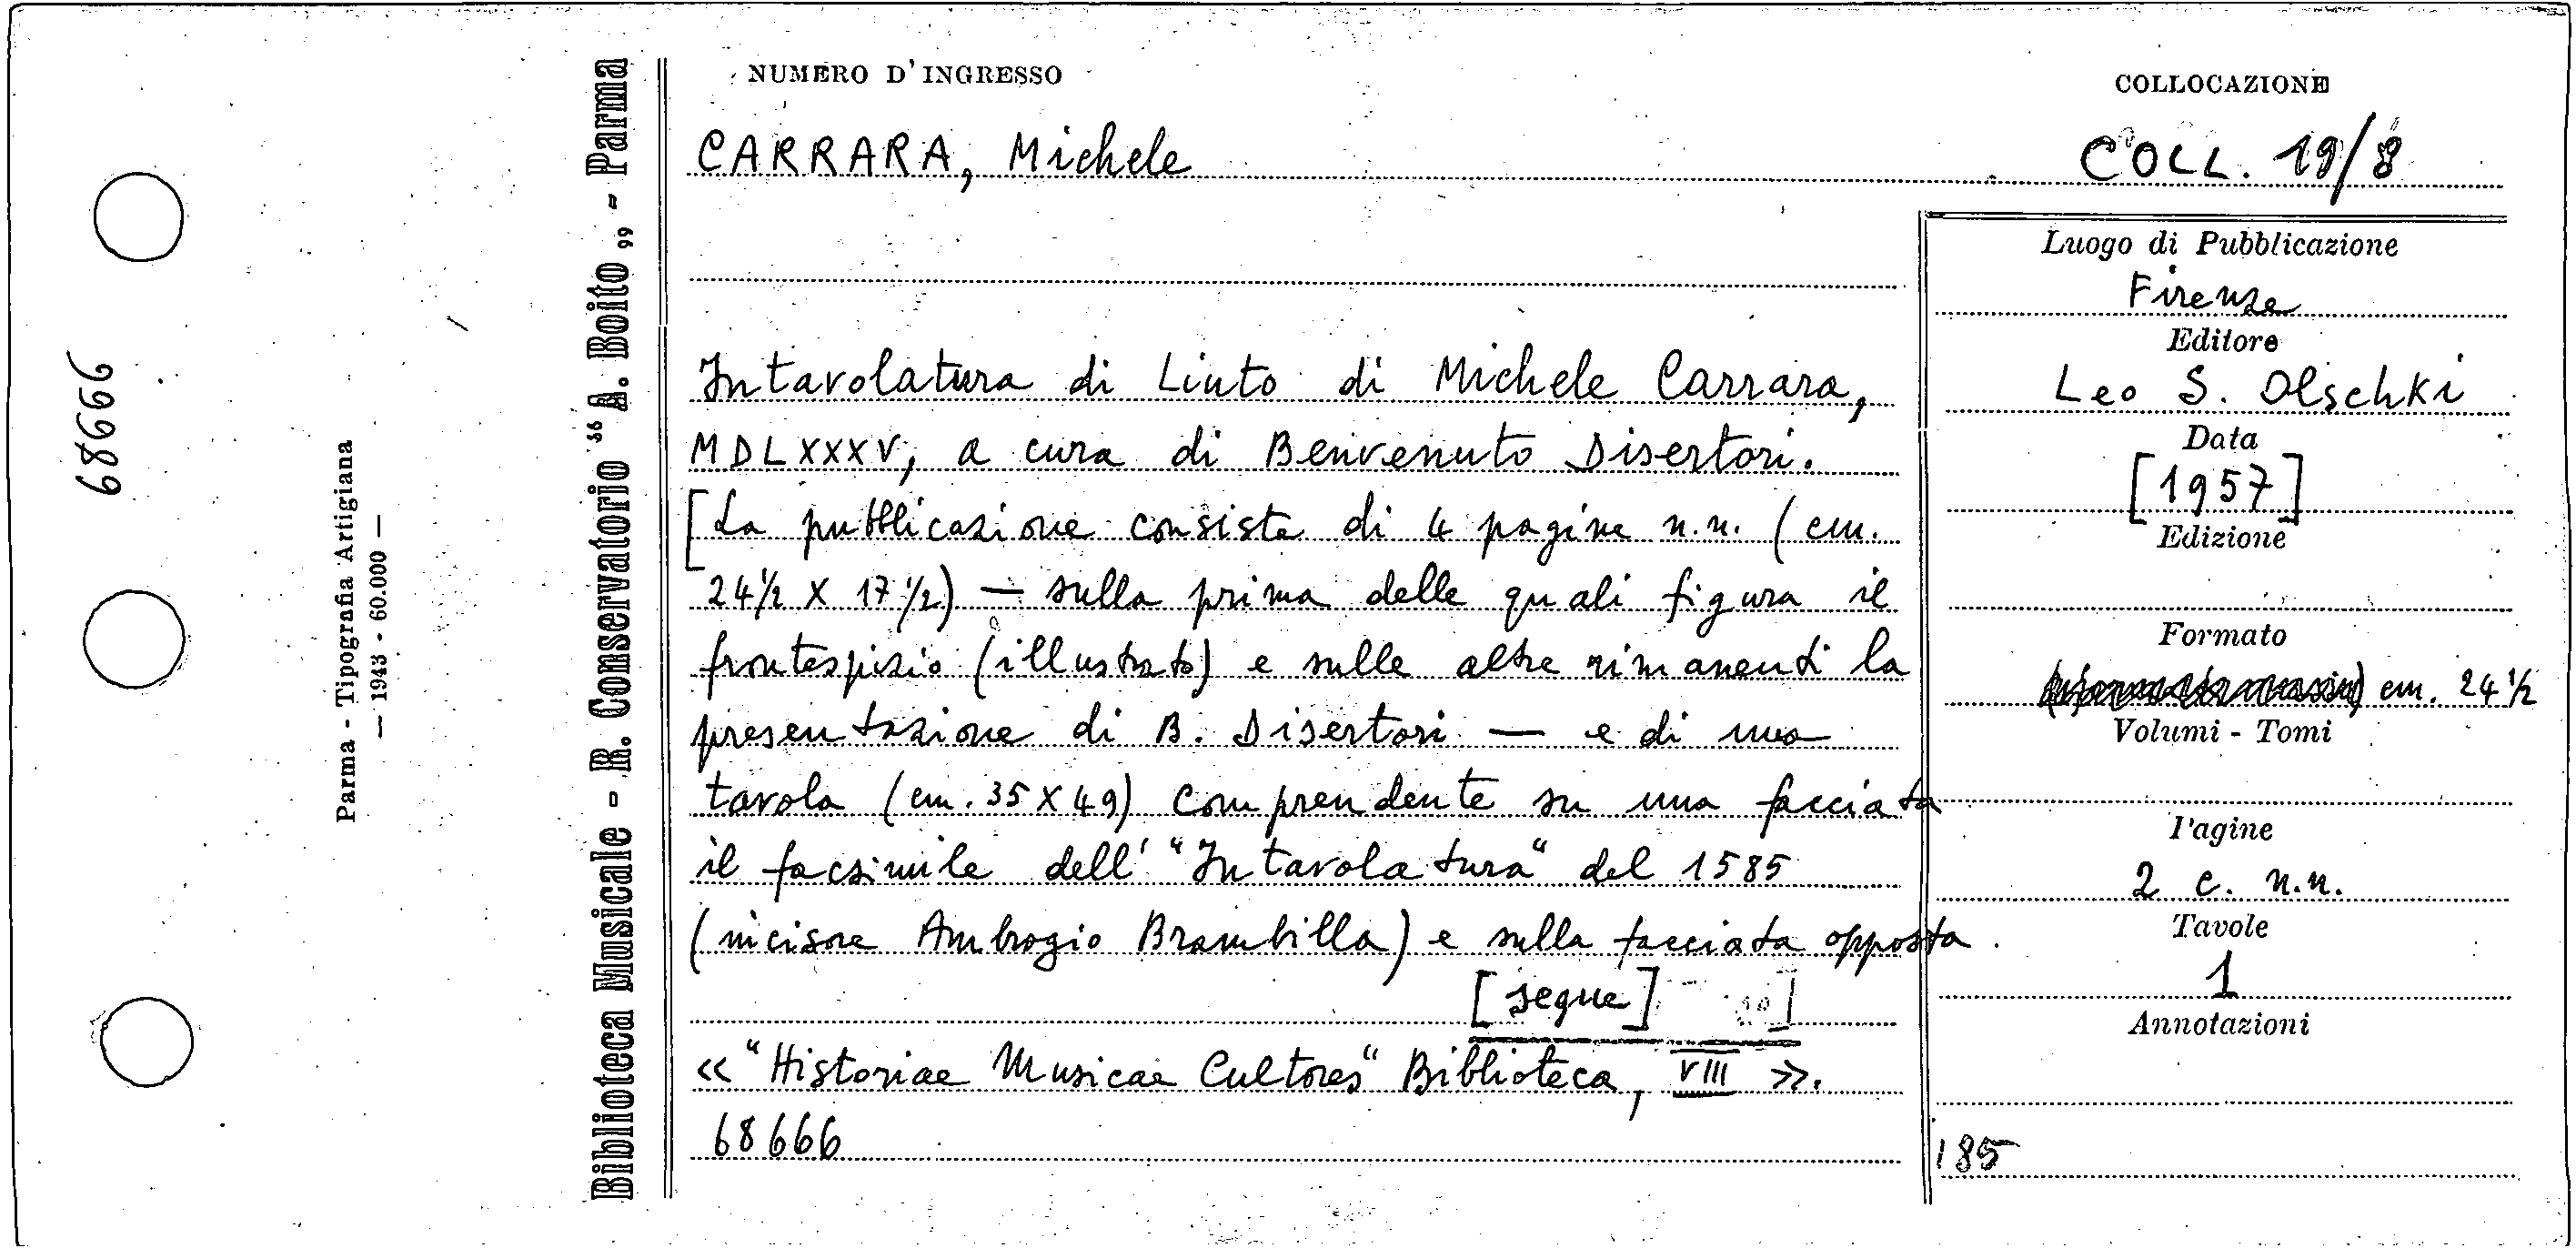 68666
Parma - Tipografia Artigiana
— 1943 - 60.000 —
Biblioteca Musicale - R. Conservatorio "A. Boito„ - Parma
NUMERO D'INGRESSO
COLLOCAZIONE
CARRARA, Michele
COLL. 19/8
Intavolatura di Liuto di Michele Carrara,
MDLXXXV, a cura di Benvenuto Disertori.
[La pubblicazione consiste di 4 pagine n.n. (cm.
24½ X 17½) — sulla prima delle quali figura il
frontespizio (illustrato) e sulle altre rimanenti la
presentazione di B. Disertori — e di una
tavola (cm. 35 X 49) comprendente su una facciata
il facsimile dell' "Intavolatura" del 1585
(incisore Ambrogio Brambilla) e sulla facciata opposta.
[segue]
« "Historiae Musicae Cultores" Biblioteca, VIII ».
68666
Luogo di Pubblicazione
Firenze
Editore
Leo S. Olschki
Data
[1957]
Edizione
Formato
cm. 24½
Volumi - Tomi
Pagine
2 c. n.n.
Tavole
1
Annotazioni
185